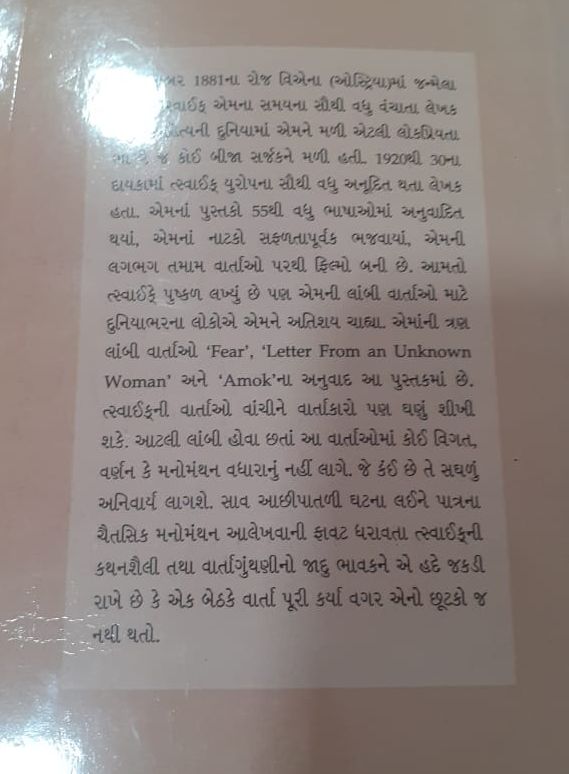 1881ના રોજ વિએના (ઓસ્ટ્રિયા)માં જન્મેલા
એમના સમયના સૌથી વધુ વંચાતા લેખક
દુનિયામાં એમને મળી એટલી લોકપ્રિયતા
જ કોઈ બીજા સર્જકને મળી હતી. 1920થી 30ના
દાયકામાં ત્સ્વાઈક્ યુરોપના સૌથી વધુ અનૂદિત થતા લેખક
હતા. એમનાં પુસ્તકો 55થી વધુ ભાષાઓમાં અનુવાદિત
થયાં, એમનાં નાટકો સફળતાપૂર્વક ભજવાયાં, એમની
લગભગ તમામ વાર્તાઓ પરથી ફિલ્મો બની છે. આમતો
ત્સ્વાઈકે પુષ્કળ લખ્યું છે પણ એમની લાંબી વાર્તાઓ માટે
દુનિયાભરના લોકોએ એમને અતિશય ચાહ્યા. એમાંની ત્રણ
લાંબી વાર્તાઓ ‘Fear’, ‘Letter From an Unknown
Woman’ અને ‘Amok’ના અનુવાદ આ પુસ્તકમાં છે.
ત્સ્વાઈક્ની વાર્તાઓ વાંચીને વાર્તાકારો પણ ઘણું શીખી
શકે. આટલી લાંબી હોવા છતાં આ વાર્તાઓમાં કોઈ વિગત,
વર્ણન કે મનોમંથન વધારાનું નહીં લાગે. જે કંઈ છે તે સઘળું
અનિવાર્ય લાગશે. સાવ આછીપાતળી ઘટના લઈને પાત્રના
ચૈતસિક મનોમંથન આલેખવાની ફાવટ ધરાવતા ત્સ્વાઈક્ની
કથનશૈલી તથા વાર્તાગુંથણીનો જાદુ ભાવકને એ હદે જકડી
રાખે છે કે એક બેઠકે વાર્તા પૂરી કર્યા વગર એનો છૂટકો જ
નથી થતો.